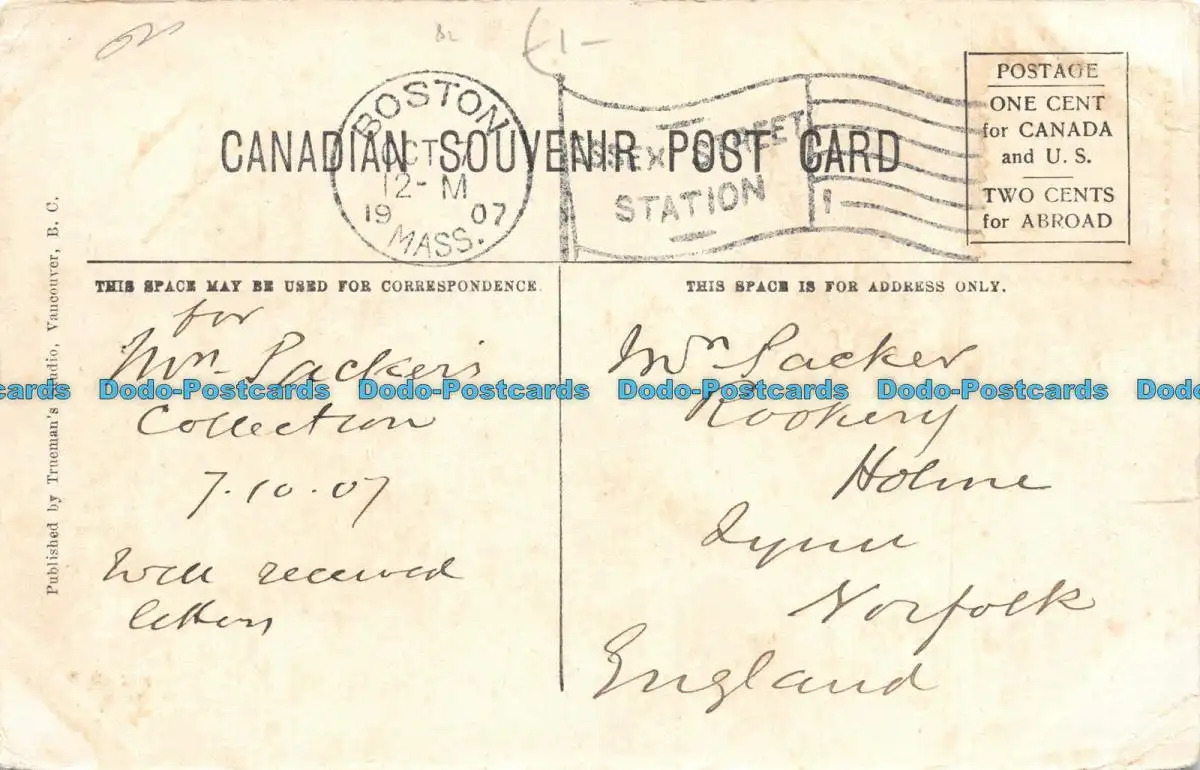 £1-
BOSTON
OCT 7
12-M
1907
MASS.
ESSEX STREET
STATION
1
CANADIAN SOUVENIR POST CARD
POSTAGE
ONE CENT
for CANADA
and U. S.
TWO CENTS
for ABROAD
Published by Trueman's Studio, Vancouver, B. C.
THIS SPACE MAY BE USED FOR CORRESPONDENCE
for
Mrs. Packer's
Collection
7.10.07
Well received
letters
THIS SPACE IS FOR ADDRESS ONLY.
Mrs Packer
Rookery
Holme
Lynn
Norfolk
England
cards Dodo-Postcards Dodo-Postcards Dodo-Postcards Dodo-Postcards Dodo